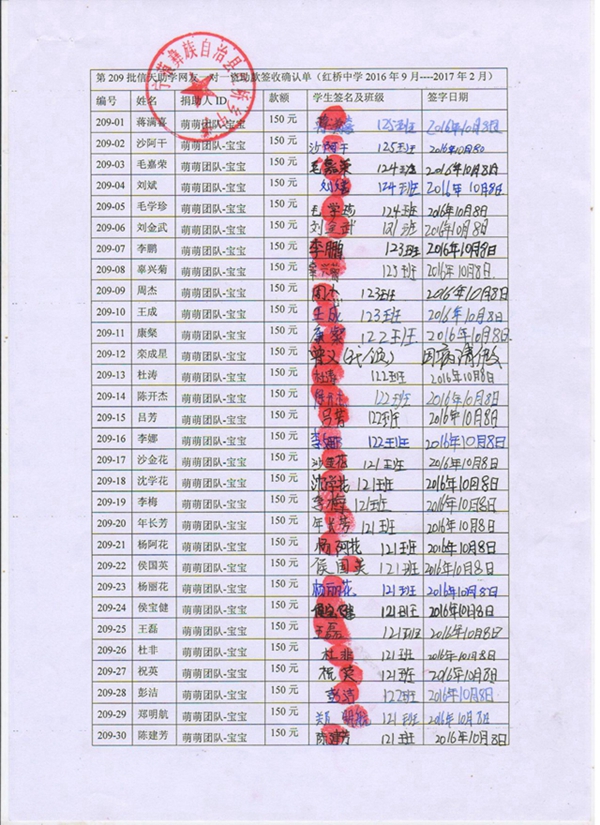 宁蒗彝族自治县红桥乡中学
第 209 批信天助学网友一对一资助款签收确认单（红桥中学 2016 年 9 月----2017 年 2 月）
编号 姓名 捐助人 ID 款额 学生签名及班级 签字日期
209-01 蒋满喜 萌萌团队-宝宝 150 元 125班 2016年10月8日
209-02 沙阿干 萌萌团队-宝宝 150 元 沙阿干 125班 2016年10月8日
209-03 毛嘉荣 萌萌团队-宝宝 150 元 毛嘉荣 124班 2016年10月8日
209-04 刘斌 萌萌团队-宝宝 150 元 刘斌 124班 2016年10月8日
209-05 毛学珍 萌萌团队-宝宝 150 元 毛学珍 124班 2016年10月8日
209-06 刘金武 萌萌团队-宝宝 150 元 刘金武 121班 2016年10月8日
209-07 李鹏 萌萌团队-宝宝 150 元 李鹏 123班 2016年10月8日
209-08 辜兴菊 萌萌团队-宝宝 150 元 123班 2016年10月8日
209-09 周杰 萌萌团队-宝宝 150 元 周杰 123班 2016年10月8日
209-10 王成 萌萌团队-宝宝 150 元 王成 123班 2016年10月8日
209-11 康粲 萌萌团队-宝宝 150 元 康粲 122班 2016年10月8日
209-12 栾成星 萌萌团队-宝宝 150 元 曾义(代领) 因病请假
209-13 杜涛 萌萌团队-宝宝 150 元 杜涛 122班 2016年10月8日
209-14 陈开杰 萌萌团队-宝宝 150 元 陈开杰 122班 2016年10月8日
209-15 吕芳 萌萌团队-宝宝 150 元 吕芳 122班 2016年10月8日
209-16 李娜 萌萌团队-宝宝 150 元 李娜 122班 2016年10月8日
209-17 沙金花 萌萌团队-宝宝 150 元 沙金花 121班 2016年10月8日
209-18 沈学花 萌萌团队-宝宝 150 元 沈学花 121班 2016年10月8日
209-19 李梅 萌萌团队-宝宝 150 元 李梅 121班 2016年10月8日
209-20 年长芳 萌萌团队-宝宝 150 元 年长芳 121班 2016年10月8日
209-21 杨阿花 萌萌团队-宝宝 150 元 杨阿花 121班 2016年10月8日
209-22 侯国英 萌萌团队-宝宝 150 元 侯国英 121班 2016年10月8日
209-23 杨丽花 萌萌团队-宝宝 150 元 杨丽花 121班 2016年10月8日
209-24 侯宝健 萌萌团队-宝宝 150 元 侯宝健 121班 2016年10月8日
209-25 王磊 萌萌团队-宝宝 150 元 王磊 121班 2016年10月8日
209-26 杜非 萌萌团队-宝宝 150 元 杜非 121班 2016年10月8日
209-27 祝英 萌萌团队-宝宝 150 元 祝英 121班 2016年10月8日
209-28 彭洁 萌萌团队-宝宝 150 元 彭洁 122班 2016年10月8日
209-29 郑明航 萌萌团队-宝宝 150 元 郑明航 121班 2016年10月8日
209-30 陈建芳 萌萌团队-宝宝 150 元 陈建芳 121班 2016年10月8日